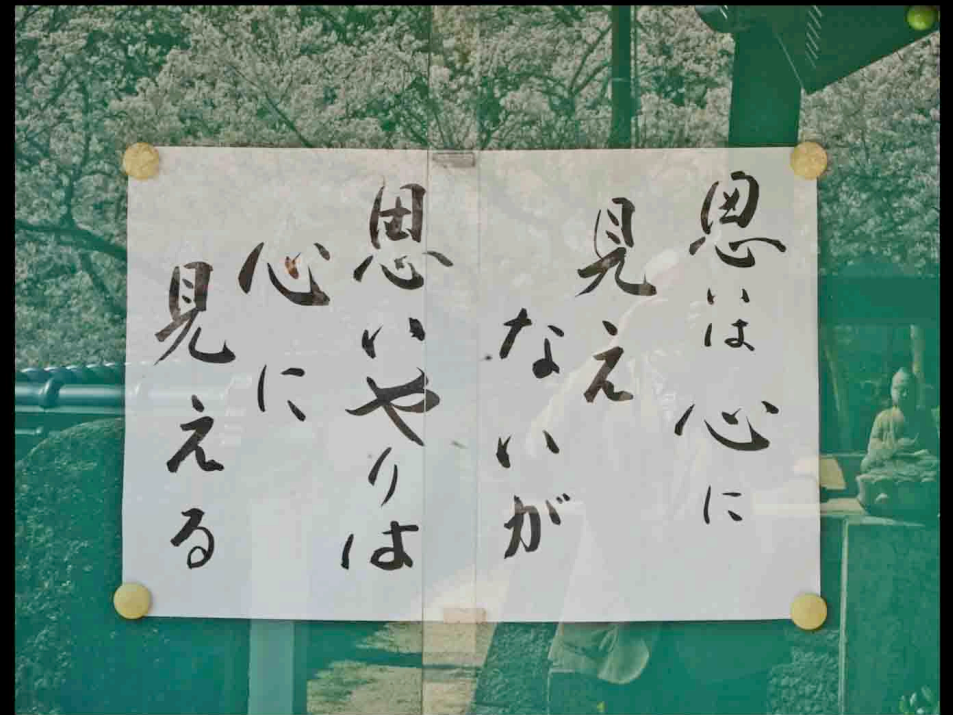 思いは心に
見え
ないが
思いやりは
心に
見える